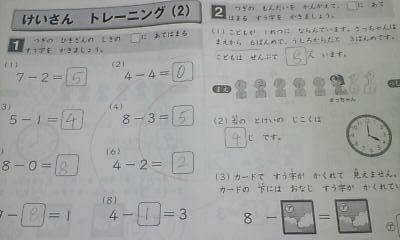 けいさん トレーニング(2)
1 つぎの ひきざんの しきの □に あてはまる
すう字を かきましょう。
(1) 7-2=5
(2) 4-4=0
3) 5-1=4
(4) 8-3=5
8-0=8
(6) 4-2=2
-8=1
(8) 4-1=3
2 つぎの もんだいを かんがえて、□に あて
はまる すう字を かきましょう。
(1) こどもが 1れつに ならんでいます。さっちゃんは
まえから 6ばんめで、うしろからだと 3ばんめです。
こどもは ぜんぶで 8人 います。
まえ
さっちゃん
(2) 右の とけいの じこくは
4じ です。
(3) カードで すう字が かくれて 見えません。
カードの 下には おなじ すう字が かくれてい
8 - ア = ア